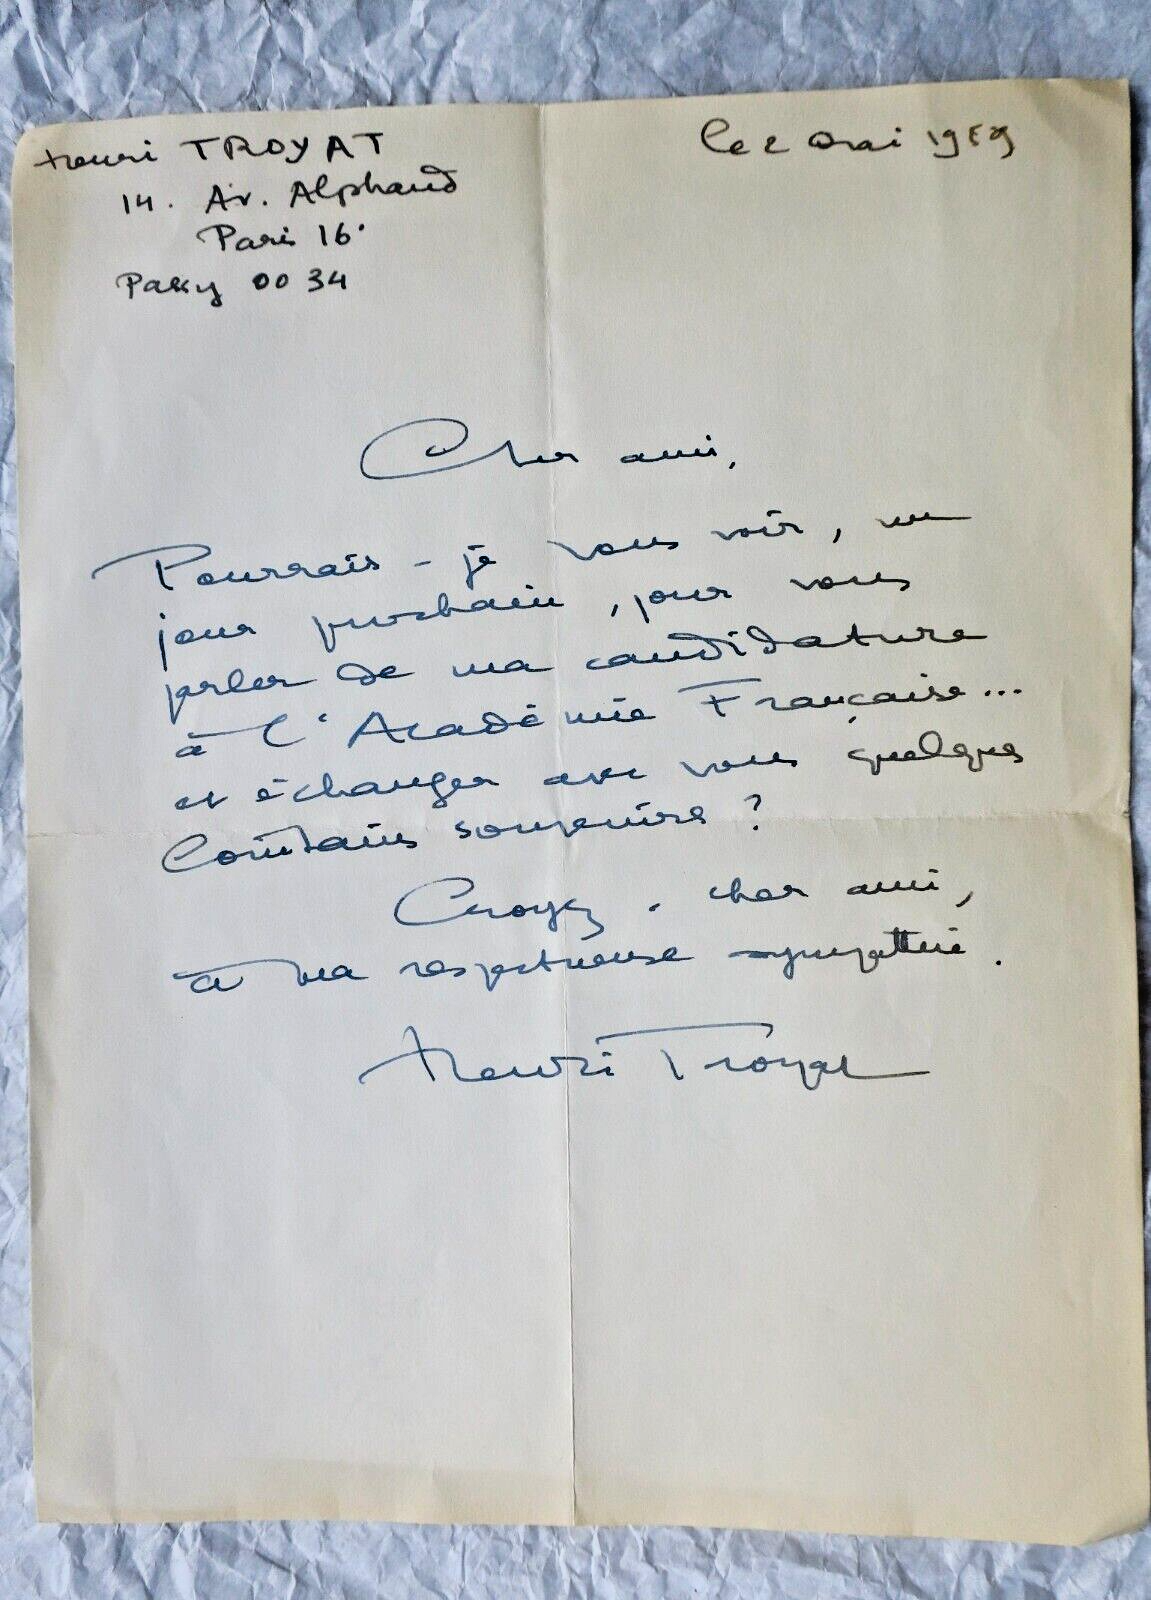 Henri TROYAT
le 2 mai 1959
14. Av. Alphand
Paris 16e
Passy 00 34
Cher ami,
Pourrais-je vous voir, un
jour prochain, pour vous
parler de ma candidature
à l'Académie Française...
et échanger avec vous quelques
lointains souvenirs ?
Croyez, cher ami,
à ma respectueuse sympathie.
Henri Troyat